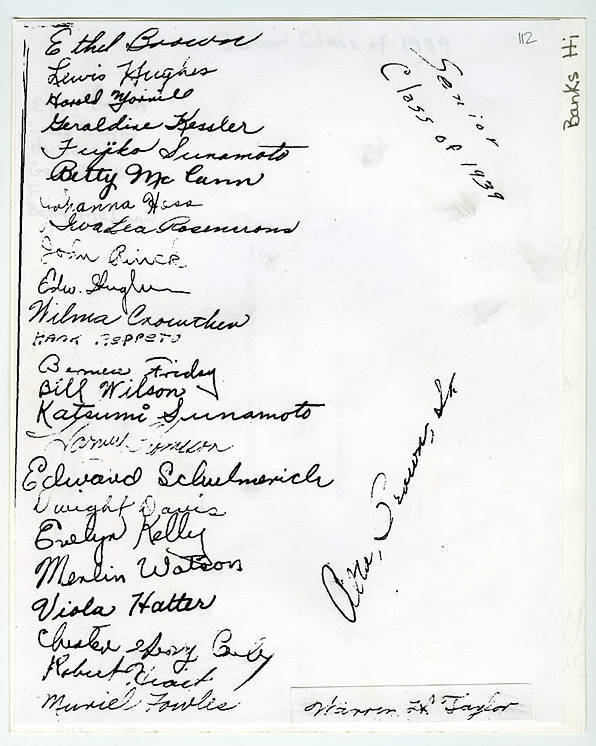 112
Banks Hi
Senior
Class of 1939
Ethel Brown
Lewis Hughes
Harold
Geraldine Kessler
Fujiko Sunamoto
Betty McCann
Johanna Hess
John
Edw.
Wilma Crowther
Hank Peppeto
Bernice Friday
Bill Wilson
Katsumi Sunamoto
Edward Schulmerich
Dwight Davis
Evelyn Kelly
Merlin Watson
Viola Hatter
Chester
Robert
Muriel Fowles
Warren H Taylor